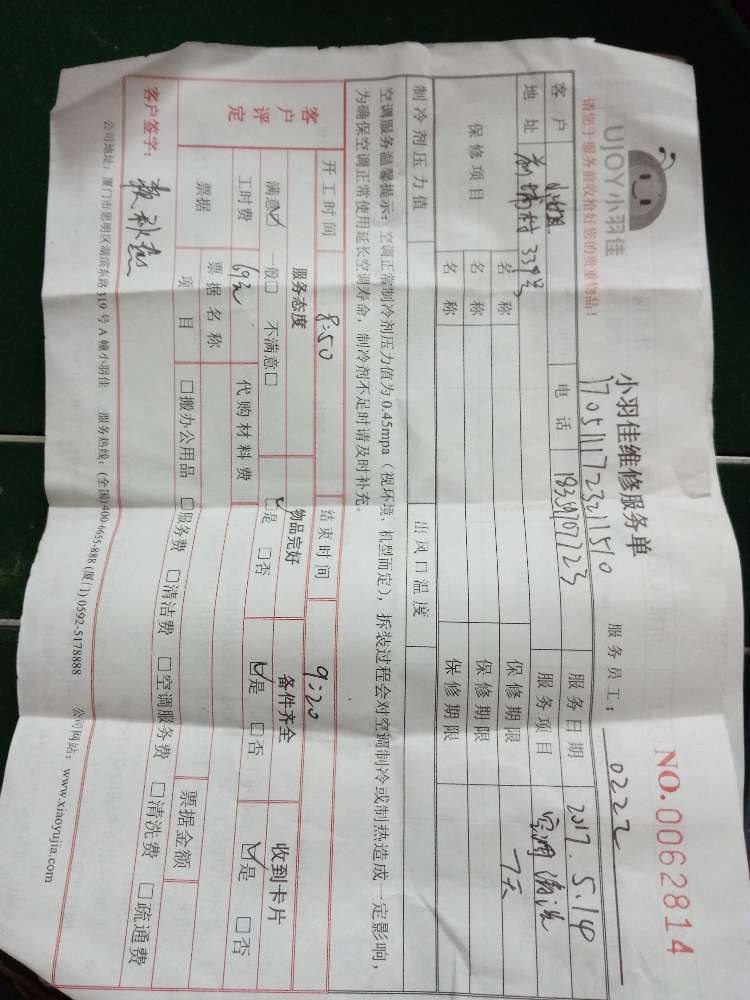 UJOY小羽佳
请您于服务前收拾好您的贵重物品！
小羽佳维修服务单
NO.0062814
服务员工：0222
客户 电话 服务日期 2017.5.14
地址 服务项目 空调清洗
339号
保修项目 名称 保修期限 7天
名称 保修期限
名称 保修期限
制冷剂压力值 出风口温度
空调服务温馨提示：空调正常制冷剂压力值为0.45mpa（视环境、机型而定），拆装过程会对空调制冷或制热造成一定影响，
为确保空调正常使用延长空调寿命，制冷剂不足时请及时补充。
开工时间 8:50 结束时间 9:20
客户评定 服务态度 物品完好 备件齐全 收到卡片
满意☑ 一般□ 不满意□ ☑是 □否 ☑是 □否 ☑是 □否
工时费 69元 代购材料费
票据 票据名称 票据金额
项目 □搬办公用品 □服务费 □清洁费 □空调服务费 □清洗费 □疏通费
客户签字：
公司地址：厦门市思明区湖滨东路319号A幢小羽佳 服务热线：(全国)400-6655-888 (厦门) 0592-5178888 公司网站：www.xiaoyujia.com